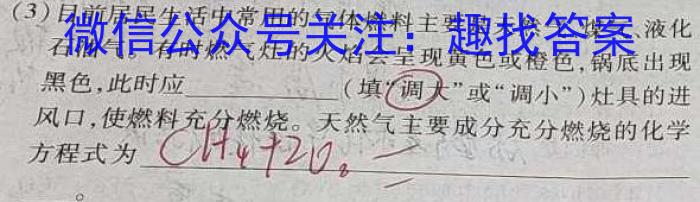 (3)目前居民生活中常用的气体燃料主要
液化
微信公众号关注：趣找答案
气。有时燃气灶的火焰会呈现黄色或橙色,锅底出现
黑色,此时应____________(填“调大”或“调小”)灶具的进
风口,使燃料充分燃烧。天然气主要成分充分燃烧的化学
方程式为 CH₄+2O₂
。